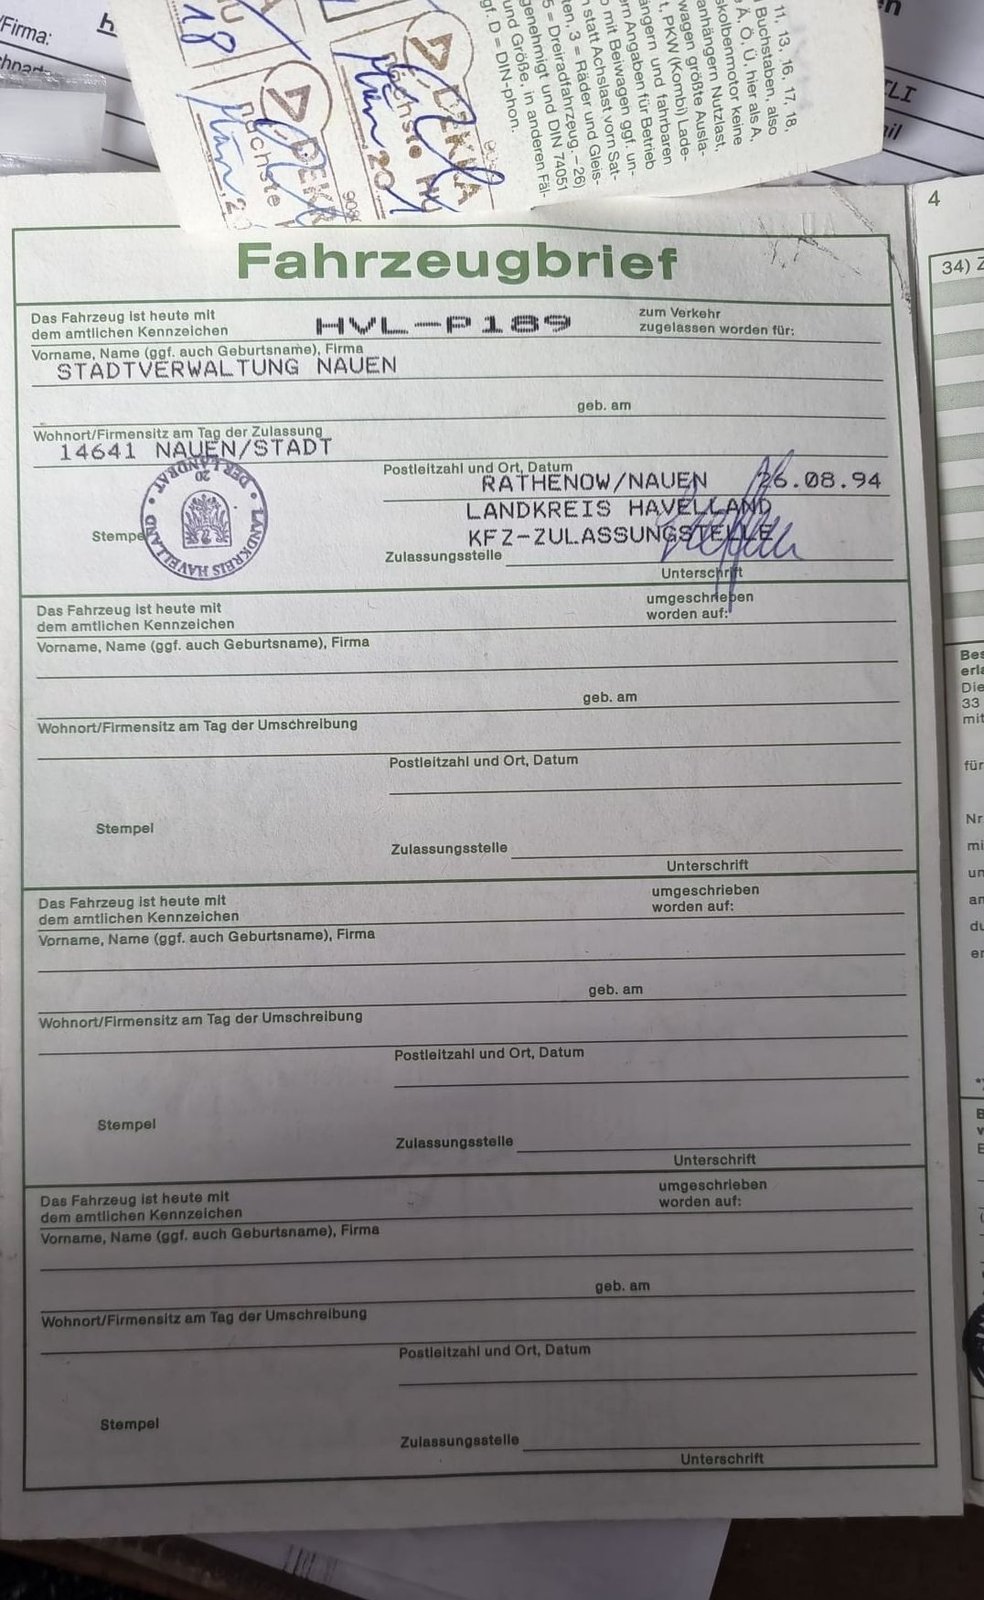 Firma:
18
DEKRA
Nächste HU
März 20
DEKRA
Nächste
11, 13, 16, 17, 18,
Buchstaben, also
Ä, Ö, Ü, hier als A,
skolbenmotor keine
anhängern Nutzlast,
wagen größte Ausla-
t, PKW (Kombi) Lade-
ängern und fahrbaren
m Angaben für Betrieb
mit Beiwagen ggf. un-
statt Achslast vorn Sat-
ten, 3 = Räder und Gleis-
5 = Dreiradfahrzeug, – 26)
genehmigt und DIN 74051
und Größe, in anderen Fäl-
gf. D = DIN-phon.
Fahrzeugbrief
Das Fahrzeug ist heute mit
dem amtlichen Kennzeichen HVL-P189 zum Verkehr
zugelassen worden für:
Vorname, Name (ggf. auch Geburtsname), Firma
STADTVERWALTUNG NAUEN
geb. am
Wohnort/Firmensitz am Tag der Zulassung
14641 NAUEN/STADT
Postleitzahl und Ort, Datum
RATHENOW/NAUEN 26.08.94
LANDKREIS HAVELLAND
Stempel
LANDKREIS HAVELLAND • DER LANDRAT •
20
KFZ-ZULASSUNGSTELLE
Zulassungsstelle
Unterschrift
Das Fahrzeug ist heute mit
dem amtlichen Kennzeichen
umgeschrieben
worden auf:
Vorname, Name (ggf. auch Geburtsname), Firma
geb. am
Wohnort/Firmensitz am Tag der Umschreibung
Postleitzahl und Ort, Datum
Stempel
Zulassungsstelle
Unterschrift
Das Fahrzeug ist heute mit
dem amtlichen Kennzeichen
umgeschrieben
worden auf:
Vorname, Name (ggf. auch Geburtsname), Firma
geb. am
Wohnort/Firmensitz am Tag der Umschreibung
Postleitzahl und Ort, Datum
Stempel
Zulassungsstelle
Unterschrift
Das Fahrzeug ist heute mit
dem amtlichen Kennzeichen
umgeschrieben
worden auf:
Vorname, Name (ggf. auch Geburtsname), Firma
geb. am
Wohnort/Firmensitz am Tag der Umschreibung
Postleitzahl und Ort, Datum
Stempel
Zulassungsstelle
Unterschrift
4
34)
Bes
erla
Die
33
mit
für
Nr
mi
un
an
du
er